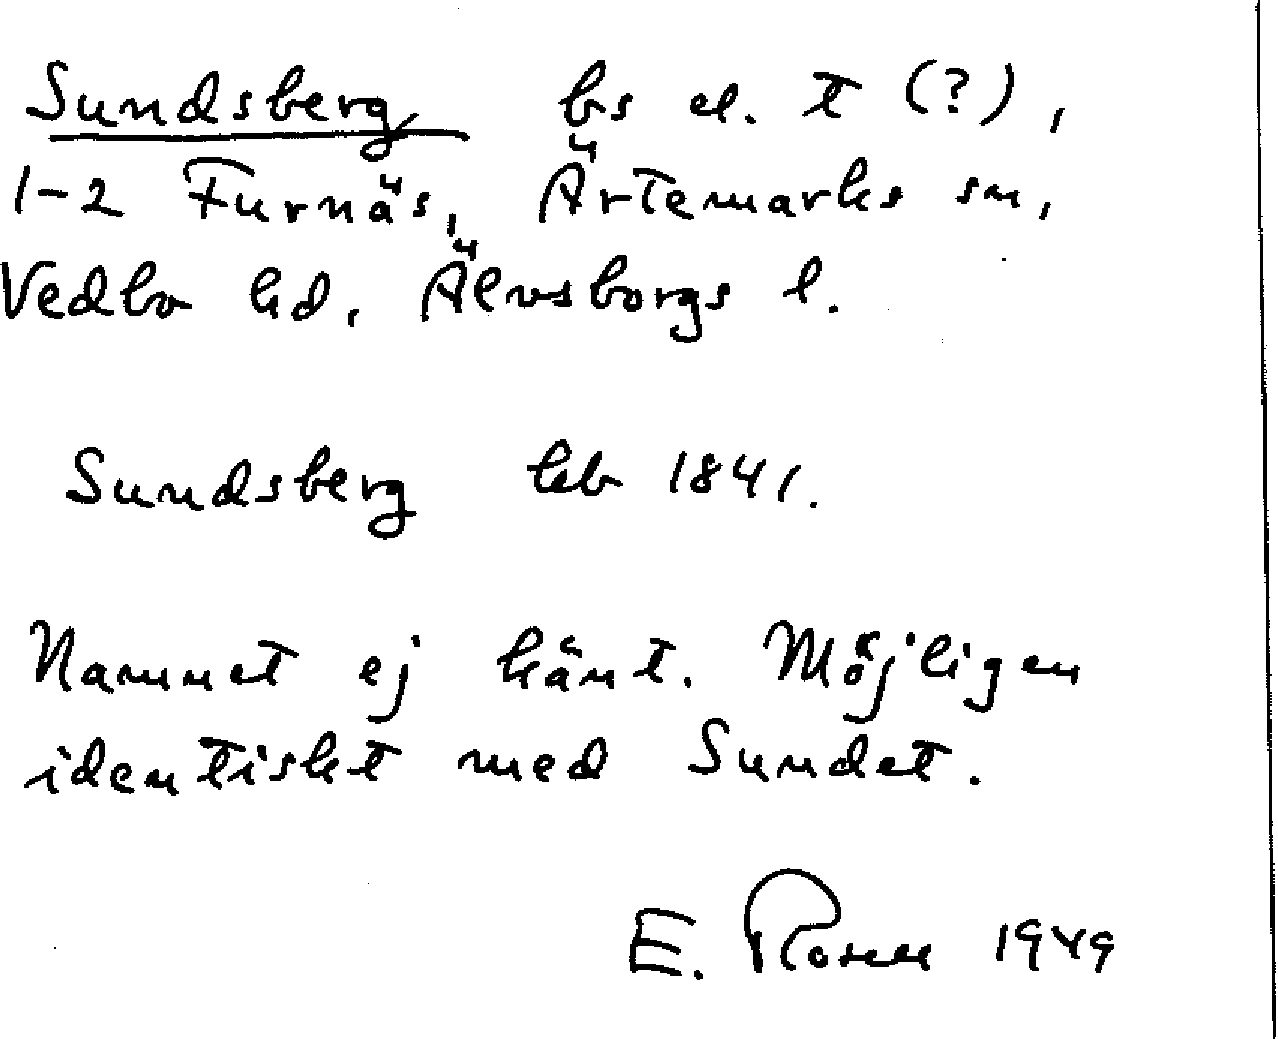 Sundsberg bs el. t (?),
1-2 Furnäs, Ärtemarks sn,
Vedbo hd, Älvsborgs l.
Sundsberg hb 1841.
Namnet ej känt. Möjligen
identiskt med Sundet.
E. Rosen 1949